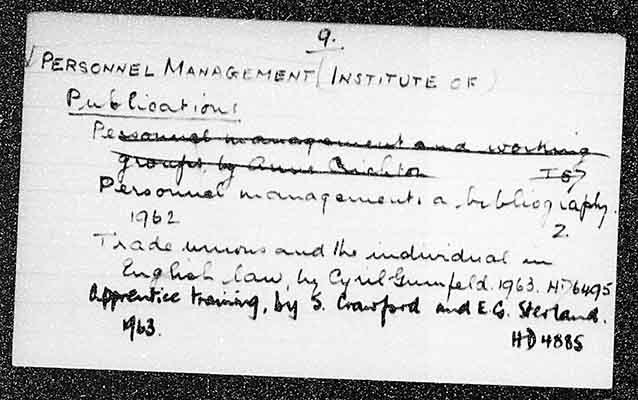 9.
✓ PERSONNEL MANAGEMENT (INSTITUTE OF)
Publications
Personnel management and working
groups, by Anne Crichton I67
Personnel management: a bibliography.
1962 Z.
Trade unions and the individual in
English law, by Cyril Grunfeld. 1963. HD6495
Apprentice training, by S. Crawford and E.G. Sterland.
1963. HD4885